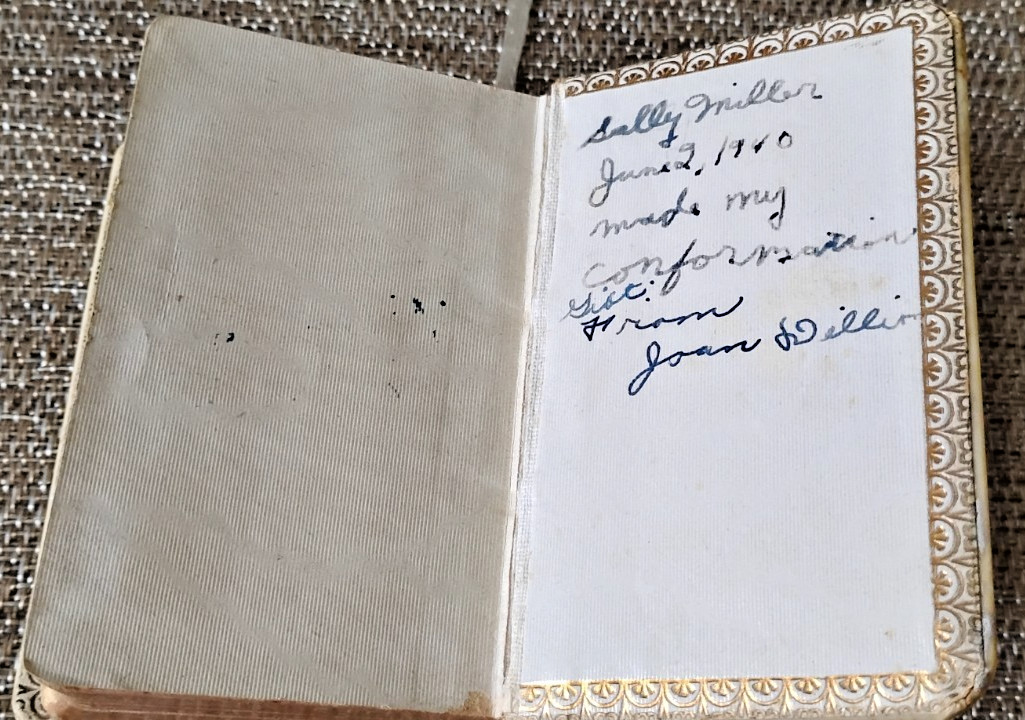 Sally Miller
June 2, 1940
made my
conformation
Gift
From
Joan